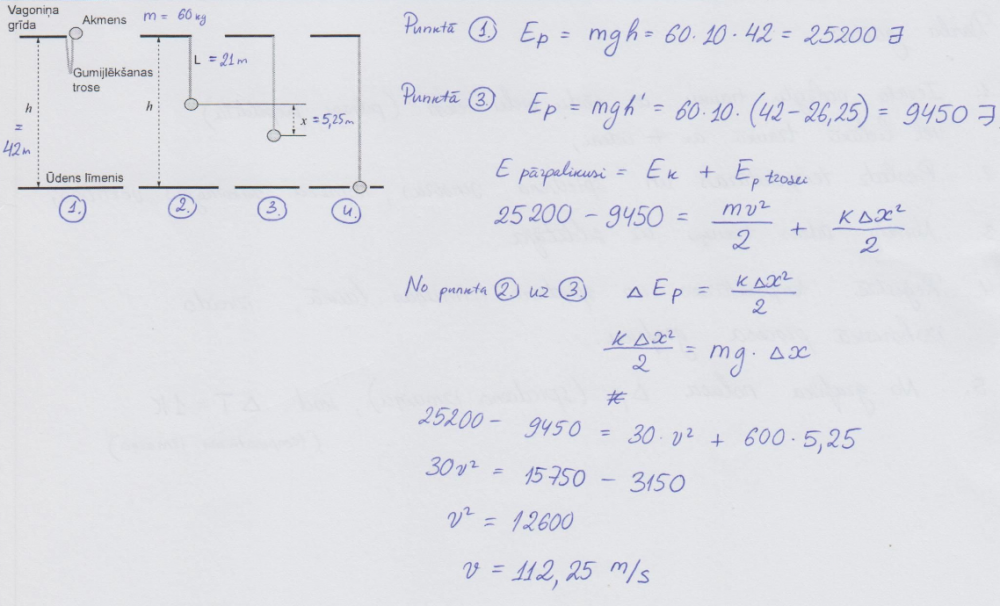 Vagoniņa
grīda
Akmens
m = 60 kg
L = 21 m
Gumijlēkšanas
trose
h
= 42m
h
x = 5,25 m
Ūdens līmenis
1.
2.
3.
4.
Punktā 1. Ep = mgh = 60·10·42 = 25200 J
Punktā 3. Ep = mgh' = 60·10·(42-26,25) = 9450 J
E pārpalikusi = Ek + Ep trosei
25200 - 9450 = mv²/2 + kΔx²/2
No punkta 2. uz 3. ΔEp = kΔx²/2
kΔx²/2 = mg·Δx
25200 - 9450 = 30·v² + 600·5,25
30v² = 15750 - 3150
v² = 12600
v = 112,25 m/s